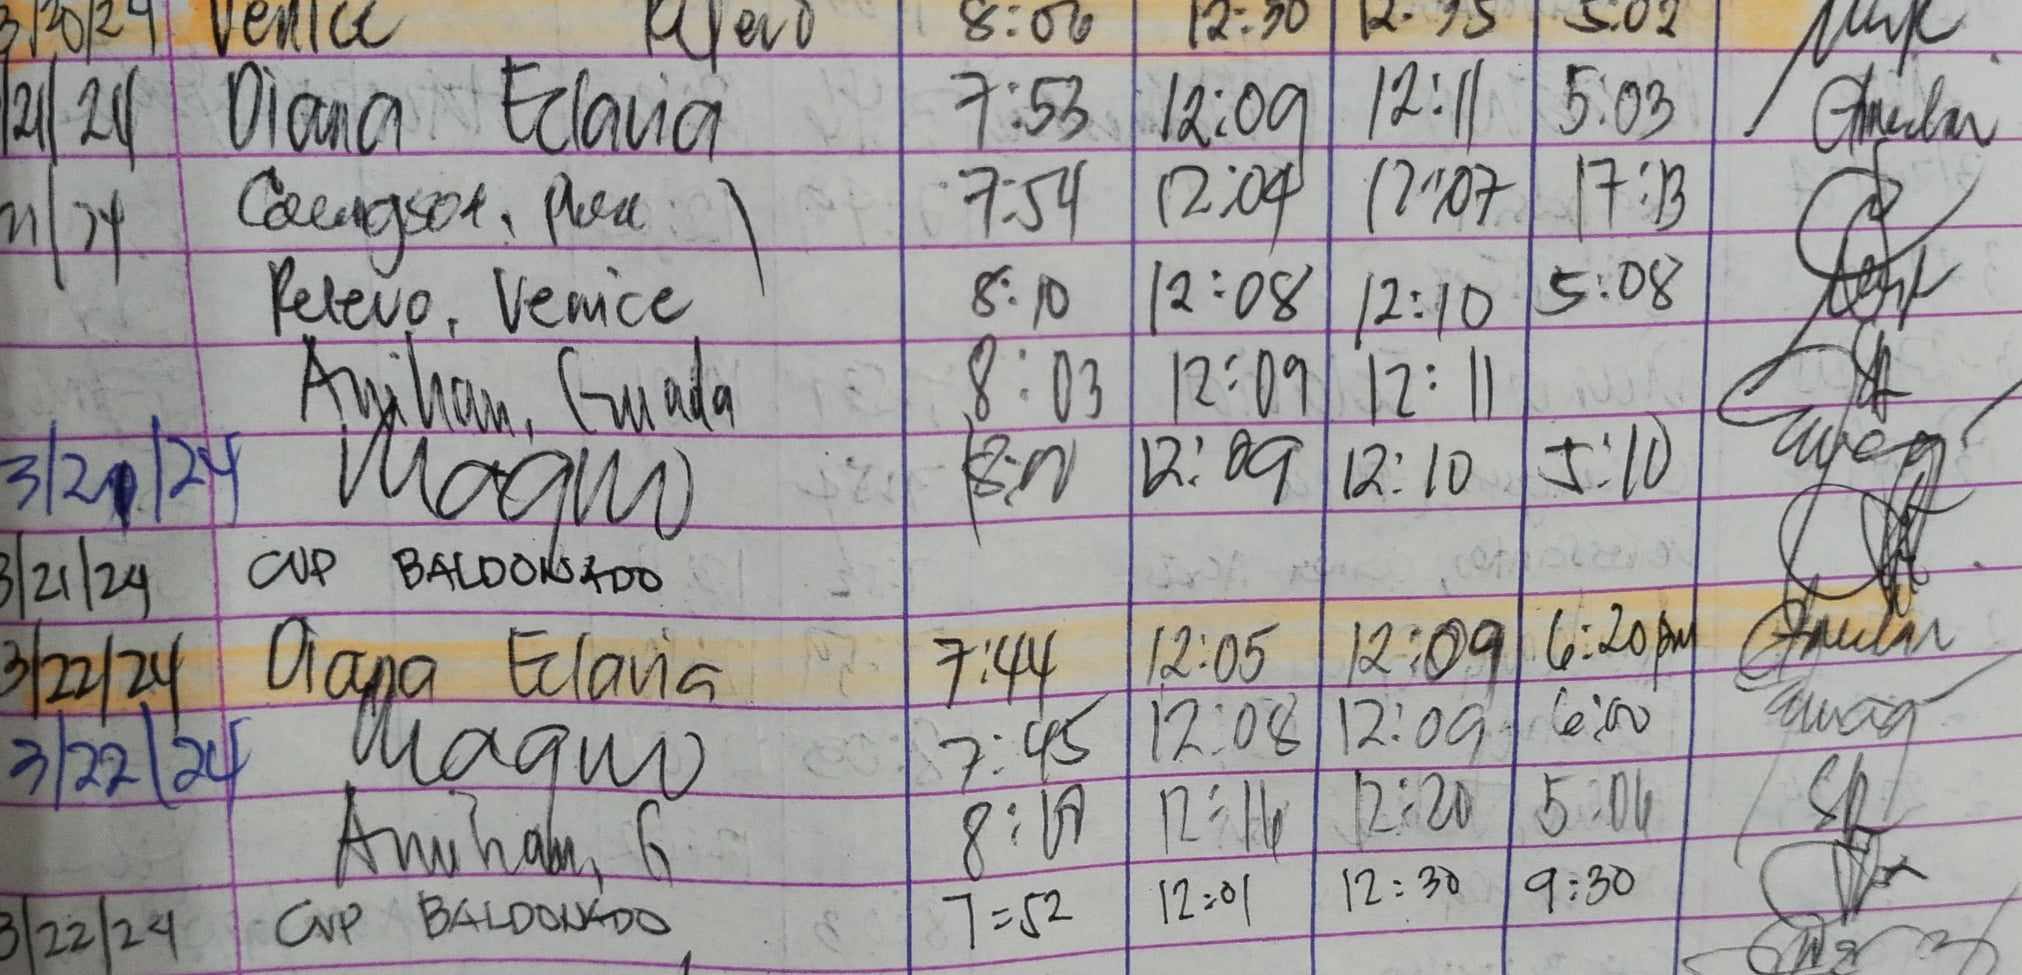 3/20/24 Venice Relevo 8:06 12:30 12:35 5:02
/21/24 Diana Eclavia 7:53 12:09 12:11 5:03
21/24 7:54 12:04 12:07 17:13
Relevo, Venice 8:10 12:08 12:10 5:08
Anihan, Guada 8:03 12:09 12:11
3/21/24 Maquio 12:09 12:10 5:10
3/21/24 CVP BALDONADO
3/22/24 Diana Eclavia 7:44 12:05 12:09 6:20 pm
3/22/24 Maquio 7:45 12:08 12:09 6:00
Anihan, G 12:16 12:20 5:06
3/22/24 CVP BALDONADO 7:52 12:01 12:30 9:30